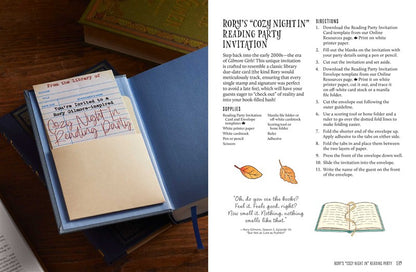 From the Library of
You're Invited to a
Rory Gilmore-Inspired
Cozy Night In
Reading Party
RORY'S "COZY NIGHT IN"
READING PARTY
INVITATION
Step back into the early 2000s—the era
of Gilmore Girls! This unique invitation
is crafted to resemble a classic library
due-date card (the kind Rory would
meticulously track, ensuring that every
single stamp and signature was perfect
to avoid a late fee), which will have your
guests eager to "check out" of reality and
into your book-filled bash!
SUPPLIES
Reading Party Invitation
Card and Envelope
templates
White printer paper
White cardstock
Pen or pencil
Scissors
Manila file folder or
off-white cardstock
Scoring tool or
bone folder
Ruler
Adhesive
"Oh, do you see the books?
Feel it. Feels good, right?
Now smell it. Nothing, nothing
smells like that."
DIRECTIONS
1. Download the Reading Party Invitation
Card template from our Online
Resources page. Print on white
printer paper.
2. Fill out the blanks on the invitation with
your party details using a pen or pencil.
3. Cut out the invitation and set aside.
4. Download the Reading Party Invitation
Envelope template from our Online
Resources page. Print it on white
printer paper, cut it out, and trace it
on off-white card stock or a manila
file folder.
5. Cut the envelope out following the
outer guideline.
6. Use a scoring tool or bone folder and a
ruler to go over the dotted fold lines to
make folding easier.
7. Fold the shorter end of the envelope up.
Apply adhesive to the tabs on either side.
8. Fold the tabs in and place them between
the two layers of paper.
9. Press the front of the envelope down well.
10. Slide the invitation into the envelope.
11. Write the name of the guest on the front
of the envelope.
RORY'S "COZY NIGHT IN" READING PARTY